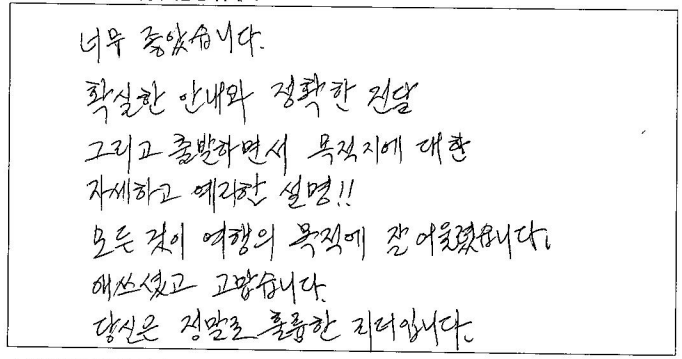 너무 좋았습니다.
확실한 안내와 정확한 전달
그리고 출발하면서 목적지에 대한
자세하고 예리한 설명!!
모든 것이 여행의 목적에 잘 어울렸습니다.
애쓰셨고 고맙습니다.
당신은 정말로 훌륭한 리더입니다.